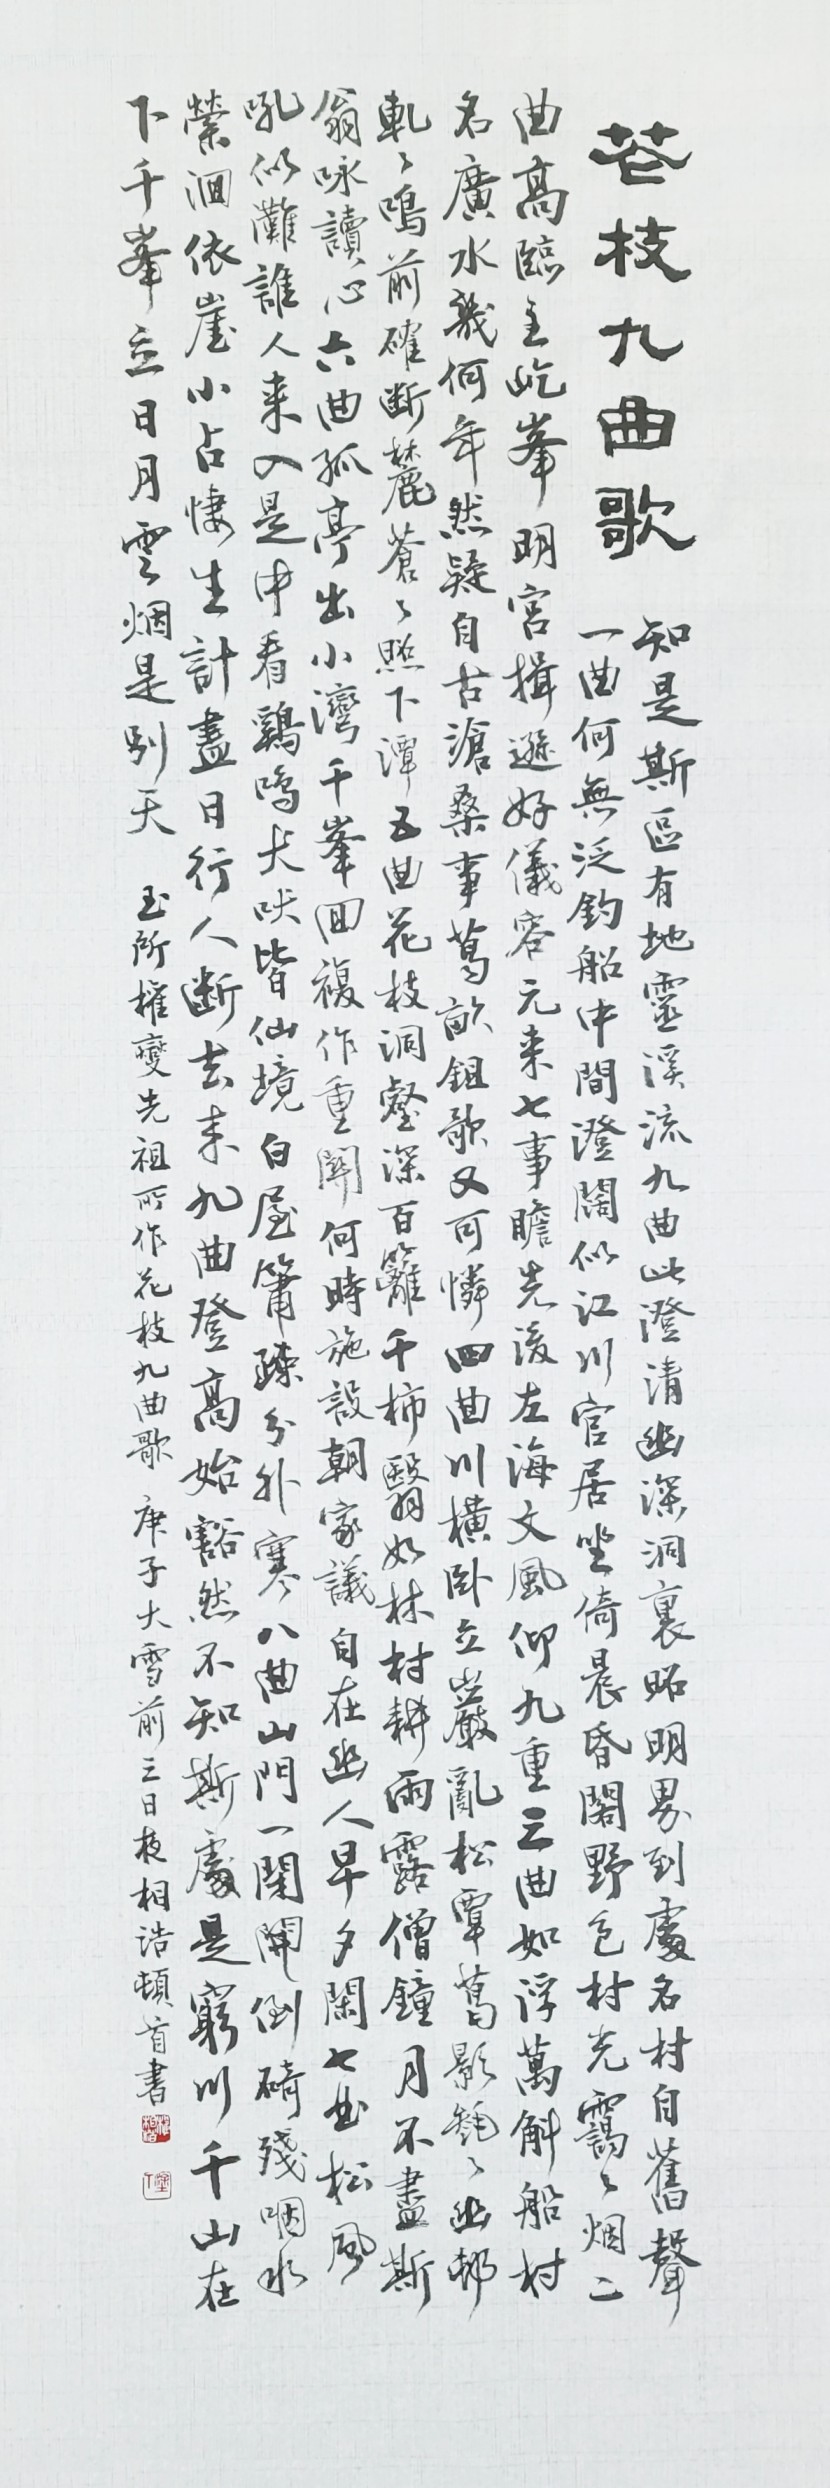 花枝九曲歌
知是斯區有地靈溪流九曲此澄清幽深洞裏昭明界到處名村自舊聲
一曲何無泛釣船中間澄闊似江川官居坐倚晨昏閣野色村光靄々烟二
曲高臨主屹峯明宮揖遜好儀容元來七事瞻先後左海文風仰九重三曲如浮萬斛船村
名廣水幾何年然疑自古滄桑事葛畝鉏歌又可憐四曲川橫臥立巖亂松覃葛影毿々幽邨
軋々鳴前確斷麓蒼々照下潭五曲花枝洞壑深百籬千柿翳如林村耕雨露僧鐘月不盡斯
翁咏讀心六曲孤亭出小灣千峯回複作重關何時施設朝家議自在幽人早夕閑七曲松風
吼似灘誰人來入是中看鷄鳴犬吠皆仙境白屋簫疎分外寒八曲山門一閉開倒碕殘咽水
縈洄依崖小占悽生計盡日行人斷去來九曲登高始豁然不知斯處是窮川千山在
下千峯立日月雲烟是別天 玉所權燮先祖所作花枝九曲歌 庚子大雪前三日夜相浩頓首書